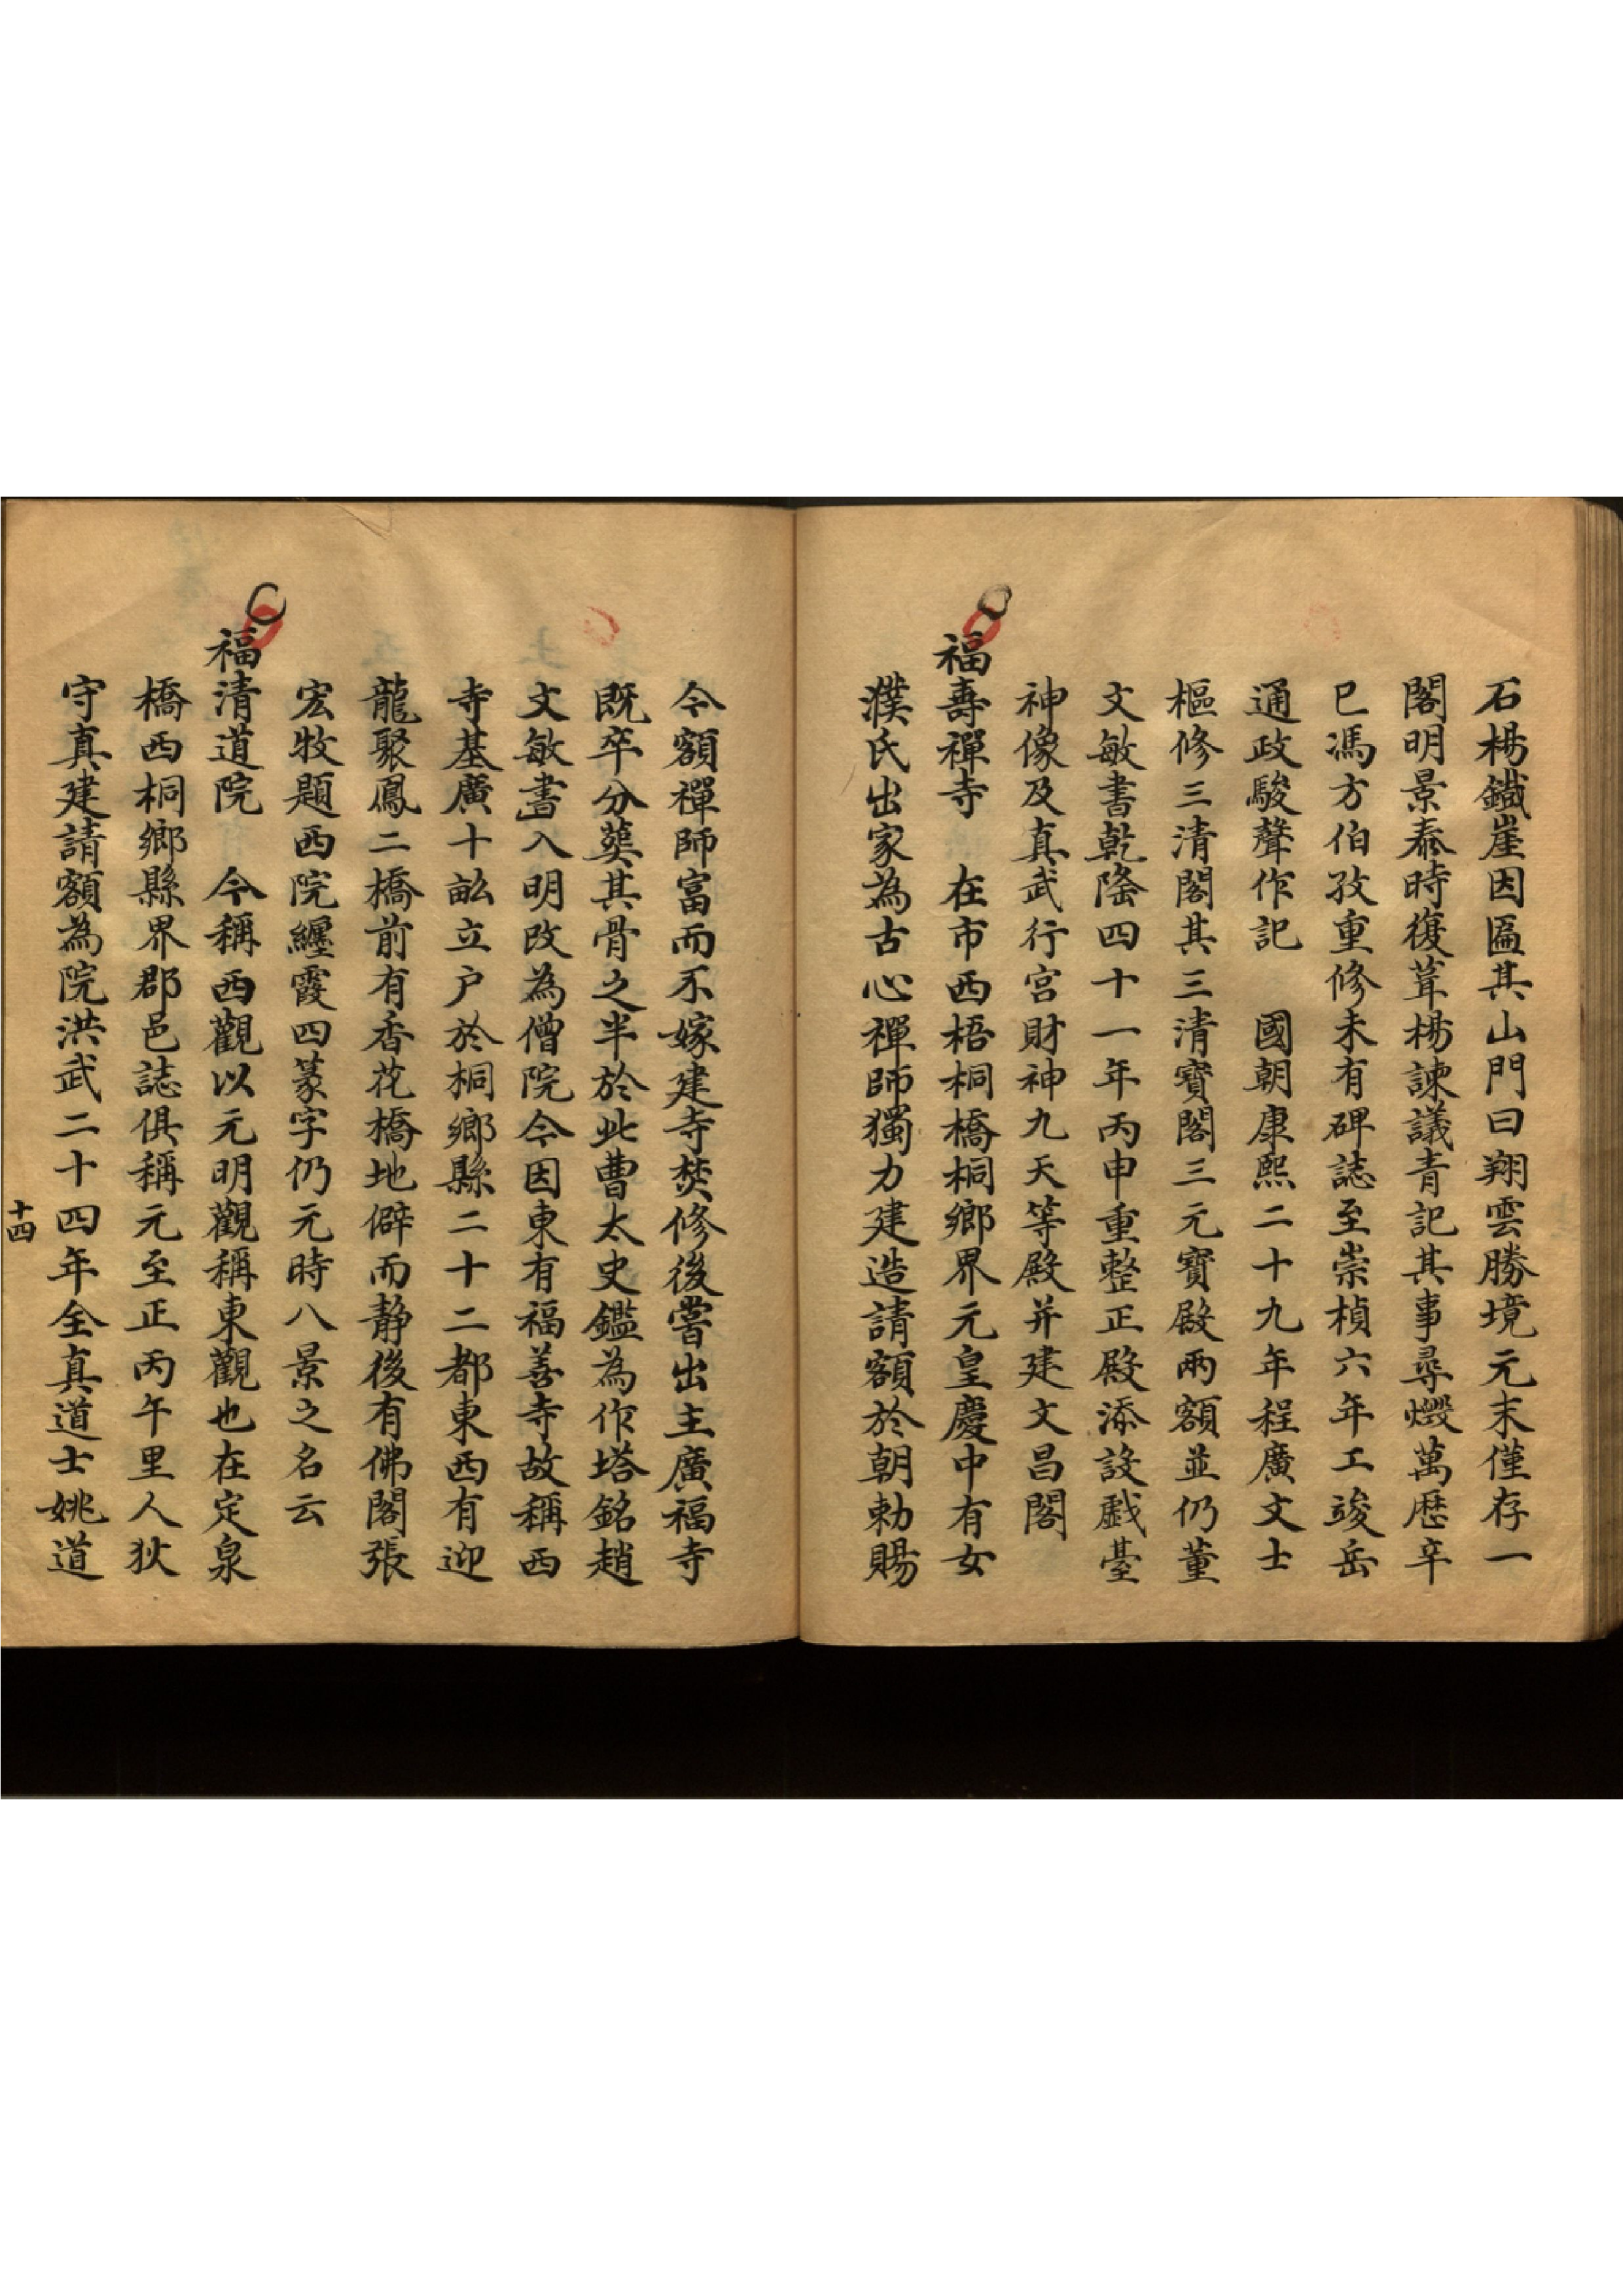 石楊鐵崖因匾其山門曰翔雲勝境元末僅存一
閣明景泰時復葺楊諫議青記其事尋燬萬歷辛
巳馮方伯孜重修未有碑誌至崇楨六年工竣岳
通政駿聲作記　國朝康熙二十九年程廣文士
樞修三清閣其三清寶閣三元寶殿兩額並仍董
文敏書乾隆四十一年丙申重整正殿添設戲臺
神像及真武行宮財神九天等殿并建文昌閣
福壽禪寺　在市西梧桐橋桐鄉界元皇慶中有女
濮氏出家為古心禪師獨力建造請額於朝勅賜
今額禪師富而不嫁建寺焚修後嘗出主廣福寺
既卒分葬其骨之半於此曹太史鑑為作塔銘趙
文敏書入明改為僧院今因東有福善寺故稱西
寺基廣十畝立户於桐鄉縣二十二都東西有迎
龍聚鳳二橋前有香花橋地僻而靜後有佛閣張
宏牧題西院纏霞四篆字仍元時八景之名云
福清道院　今稱西觀以元明觀稱東觀也在定泉
橋西桐鄉縣界郡邑誌俱稱元至正丙午里人狄
守真建請額為院洪武二十四年全真道士姚道
十四